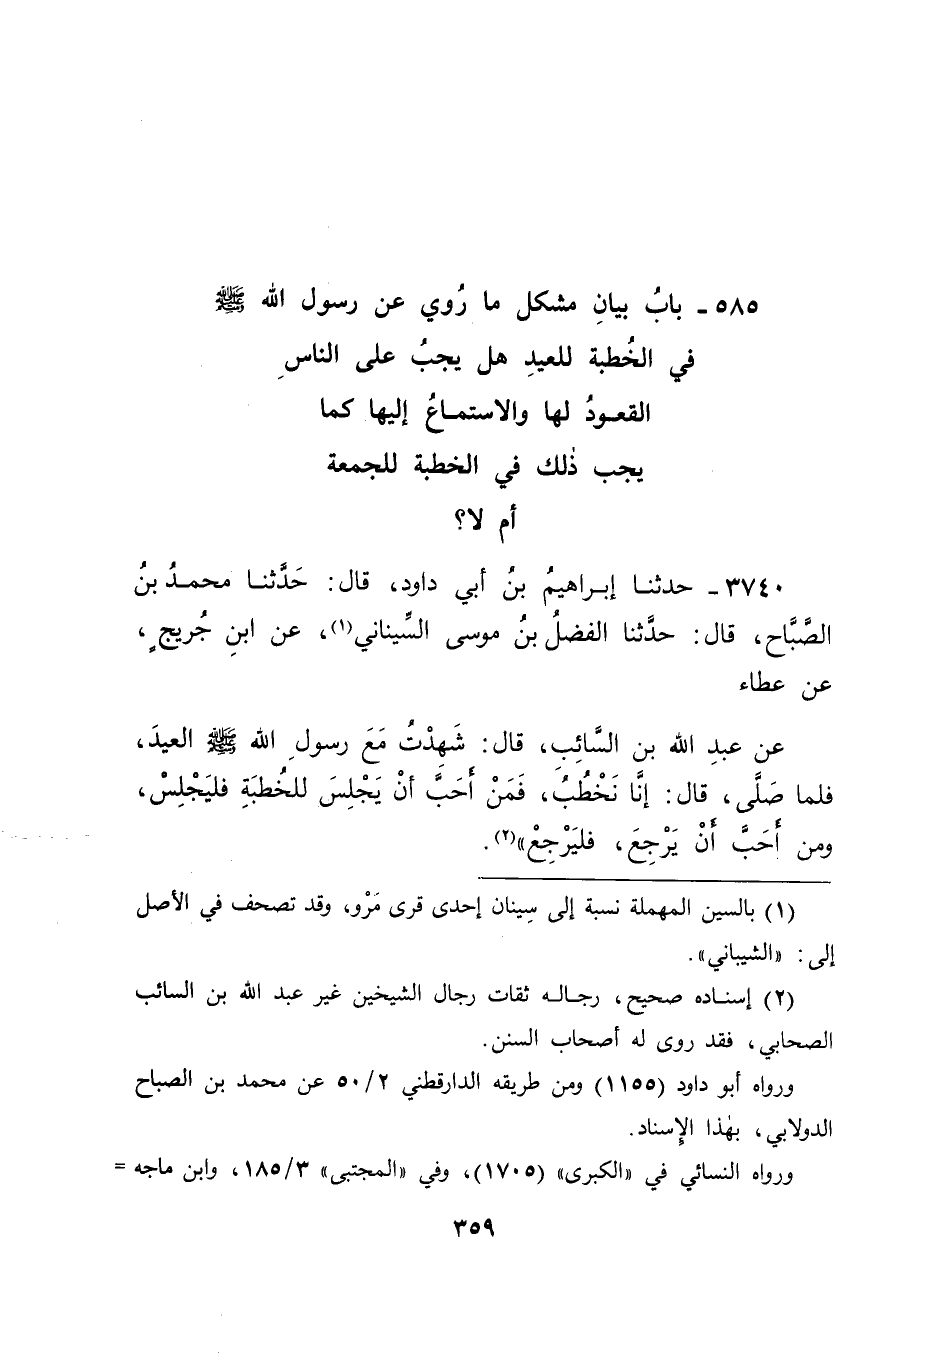 ٥٨٥ ـ بابُ بيانِ مشكل ما رُوي عن رسول الله ﷺ
في الخُطبة للعيدِ هل يجبُ على الناسِ
القعـودُ لها والاستمـاعُ إليها كما
يجب ذٰلك في الخطبة للجمعة
أم لا؟
٣٧٤٠ ـ حدثنـا إبـراهيمُ بنُ أبي داود، قال: حَدَّثنـا محمـدُ بنُ
الصَّبَّاح، قال: حدَّثنا الفضلُ بنُ موسى السِّيناني(١)، عن ابنِ جُريجٍ،
عن عطاء
عن عبدِ الله بن السَّائِبِ، قال: شَهِدْتُ مَعَ رسولِ الله ﷺ العيدَ،
فلما صَلَّى، قال: إنَّا نَخْطُبُ، فَمَنْ أَحَبَّ أنْ يَجْلِسَ للخُطبَةِ فليَجْلِسْ،
ومن أَحَبَّ أَنْ يَرْجِعَ، فليَرْجِعْ»(٢).
(١) بالسين المهملة نسبة إلى سِينان إحدى قرى مَرْو، وقد تصحف في الأصل
إلى: «الشيباني».
(٢) إسنـاده صحيح، رجـالـه ثقات رجال الشيخين غير عبد الله بن السائب
الصحابي، فقد روى له أصحاب السنن.
ورواه أبو داود (١١٥٥) ومن طريقه الدارقطني ٥٠/٢ عن محمد بن الصباح
الدولابي، بهٰذا الإِسناد.
ورواه النسائي في «الكبرى» (١٧٠٥)، وفي «المجتبى» ١٨٥/٣، وابن ماجه =
٣٥٩